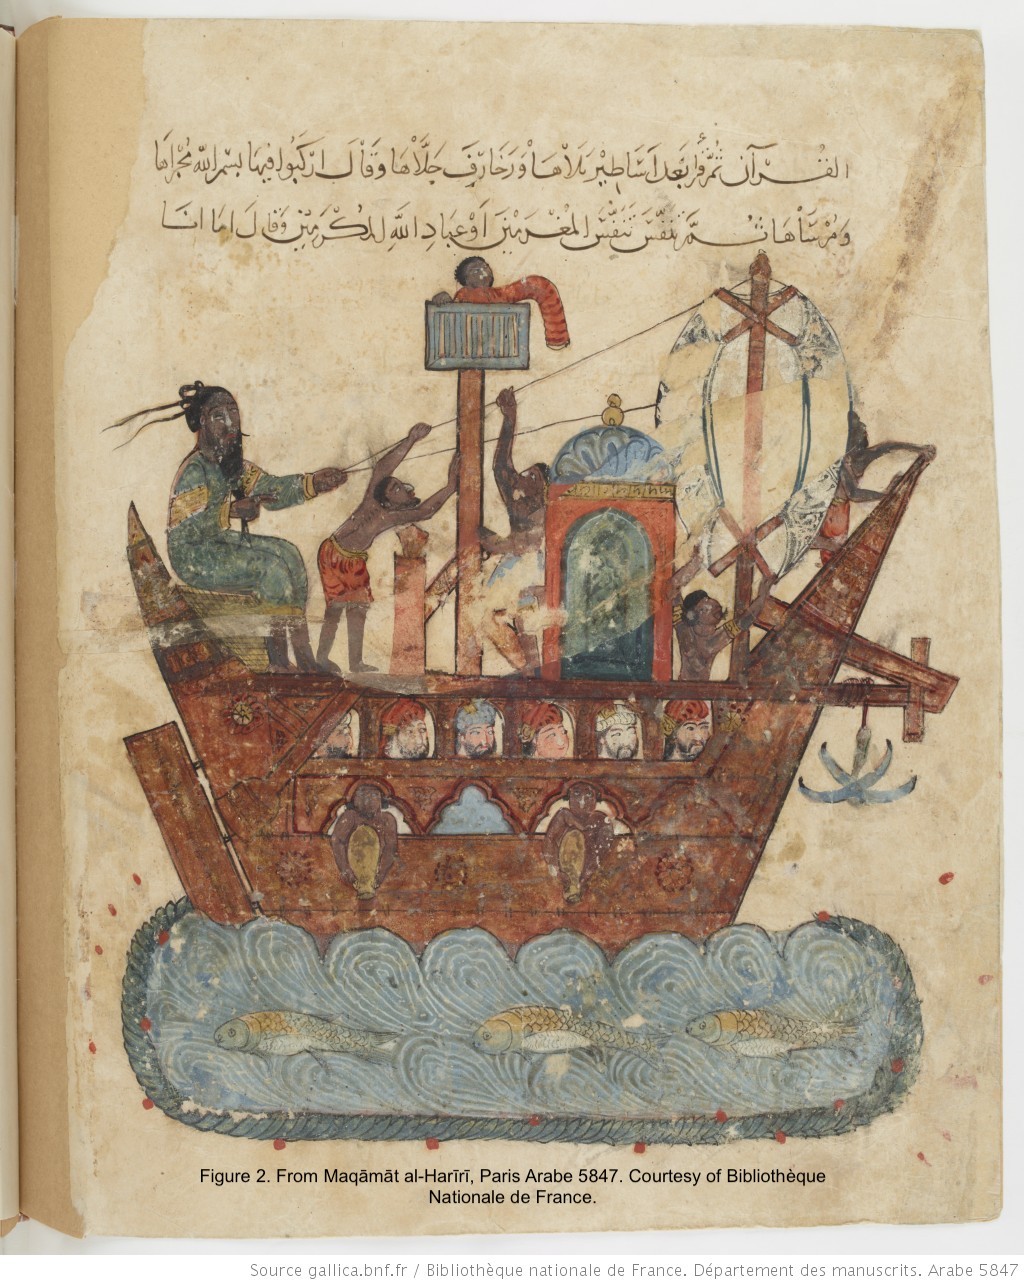 القرآن ثم قرأ بعد أساطير تلاها وزخارف جلاها وقال اركبوا فيها بسم الله مجراها
ومرساها ثم تنفس تنفس المغرمين أو عباد الله المكرمين وقال اما انا
Figure 2. From Maqāmāt al-Harīrī, Paris Arabe 5847. Courtesy of Bibliothèque
Nationale de France.
Source gallica.bnf.fr / Bibliothèque nationale de France. Département des manuscrits. Arabe 5847